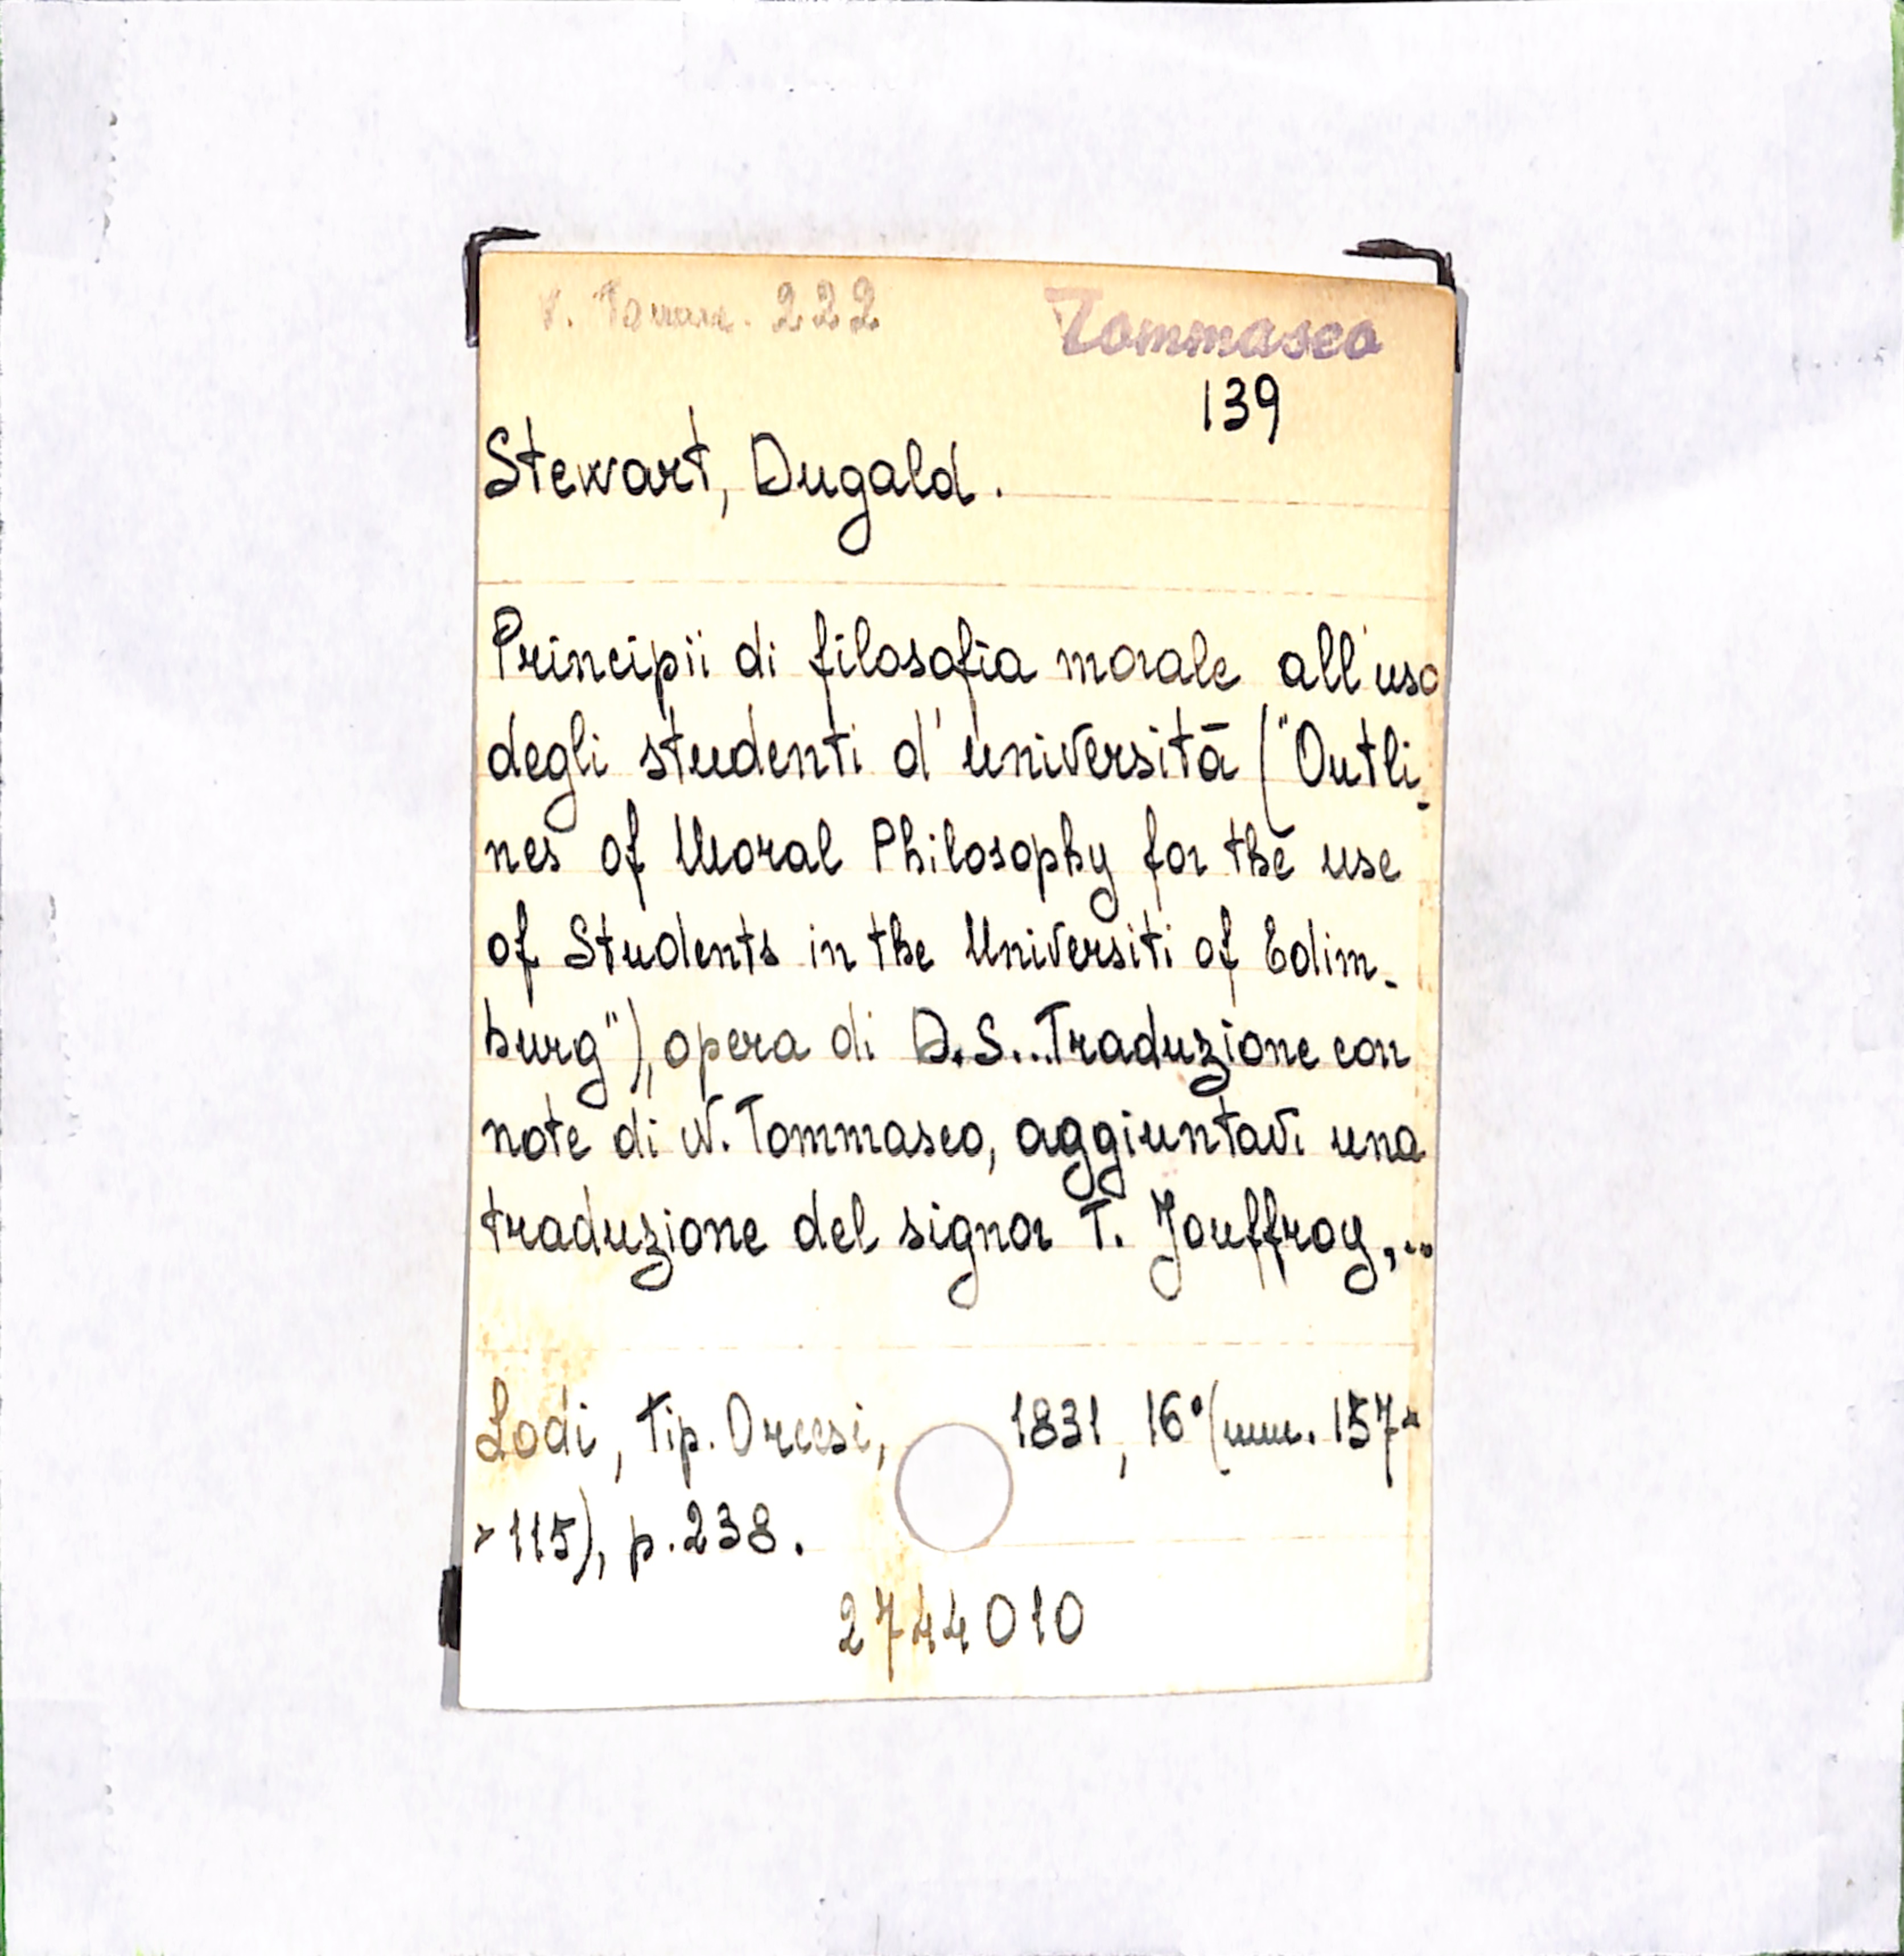 222 Tommaseo
139
Stewart, Dugald.
Principii di filosofia morale all'uso
degli studenti d'università ("Outli-
nes of Moral Philosophy for the use
of Students in the Universiti of Edim-
burg"), opera di D.S... Traduzione con
note di N. Tommaseo, aggiuntavi una
traduzione del signor T. Jouffroy,...
Lodi, Tip. Orcesi, 1831, 16° (mm. 157x
x115), p. 238.
2744010